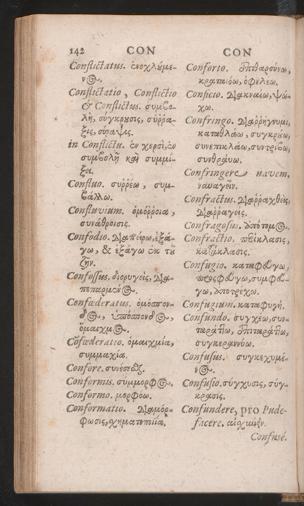 142 CON
Conflictatus. ἐνοχλύμε-
νος.
Conflictatio, Conflictio
& Conflictus. συμβο-
λὴ, σύγκρυσις, σύρρα-
ξις, σύναψις.
in Conflictu. ἐν χερσὶ, ἐν
συμβολῇ καὶ συμμί-
ξει.
Confluo. συῤῥέω, συμ-
βάλλω.
Confluvium. ὁμόρροια,
συνάθροισις.
Confodio. διαπείρω, ἐξά-
γω, & ἐξάγω ἐκ τῦ
ζῆν.
Confossus. διορυγεὶς, δια-
πεπαρμένος.
Confœderatus. ὁμόσπον-
δος, ὑπόσπονδος,
ὁμαιχμος.
Cõfœderatio. ὁμαιχμία,
συμμαχία.
Confore. συνέσεσθαι.
Conformis. σύμμορφος.
Conformo. μορφόω.
Conformatio. διαμόρ-
φωσις, σχηματισμία.
CON
Conforto. ἐπιθαρσύνω,
κραταιόω, ὀφέλεω.
Confrico. διακναίω, ψώ-
χω.
Confringo. διαῤῥήγνυμι,
καταθλάω, συγκρύω,
συνεπικλάω, συντείνω,
συνθραύω.
Confringere navem,
ναυαγεῖν.
Confractus. διαῤῥαχθεὶς,
διαῤῥαγείς.
Confragosus. ἀπότομος.
Confractio. ἐπίκλασις,
κατάκλασις.
Confugio. καταφεύγω,
προσφεύγω, συμφεύ-
γω, ἀποτρέχω.
Confugium. καταφυγή.
Confundo. συγχέω, συν-
ταράττω, ἐπιταράττω,
συγκεραννύω.
Confusus. συγκεχυμέ-
νος.
Confusio. σύγχυσις, σύγ-
κρασις.
Confundere, pro Pude-
facere. αἰσχύνειν.
Confusè.